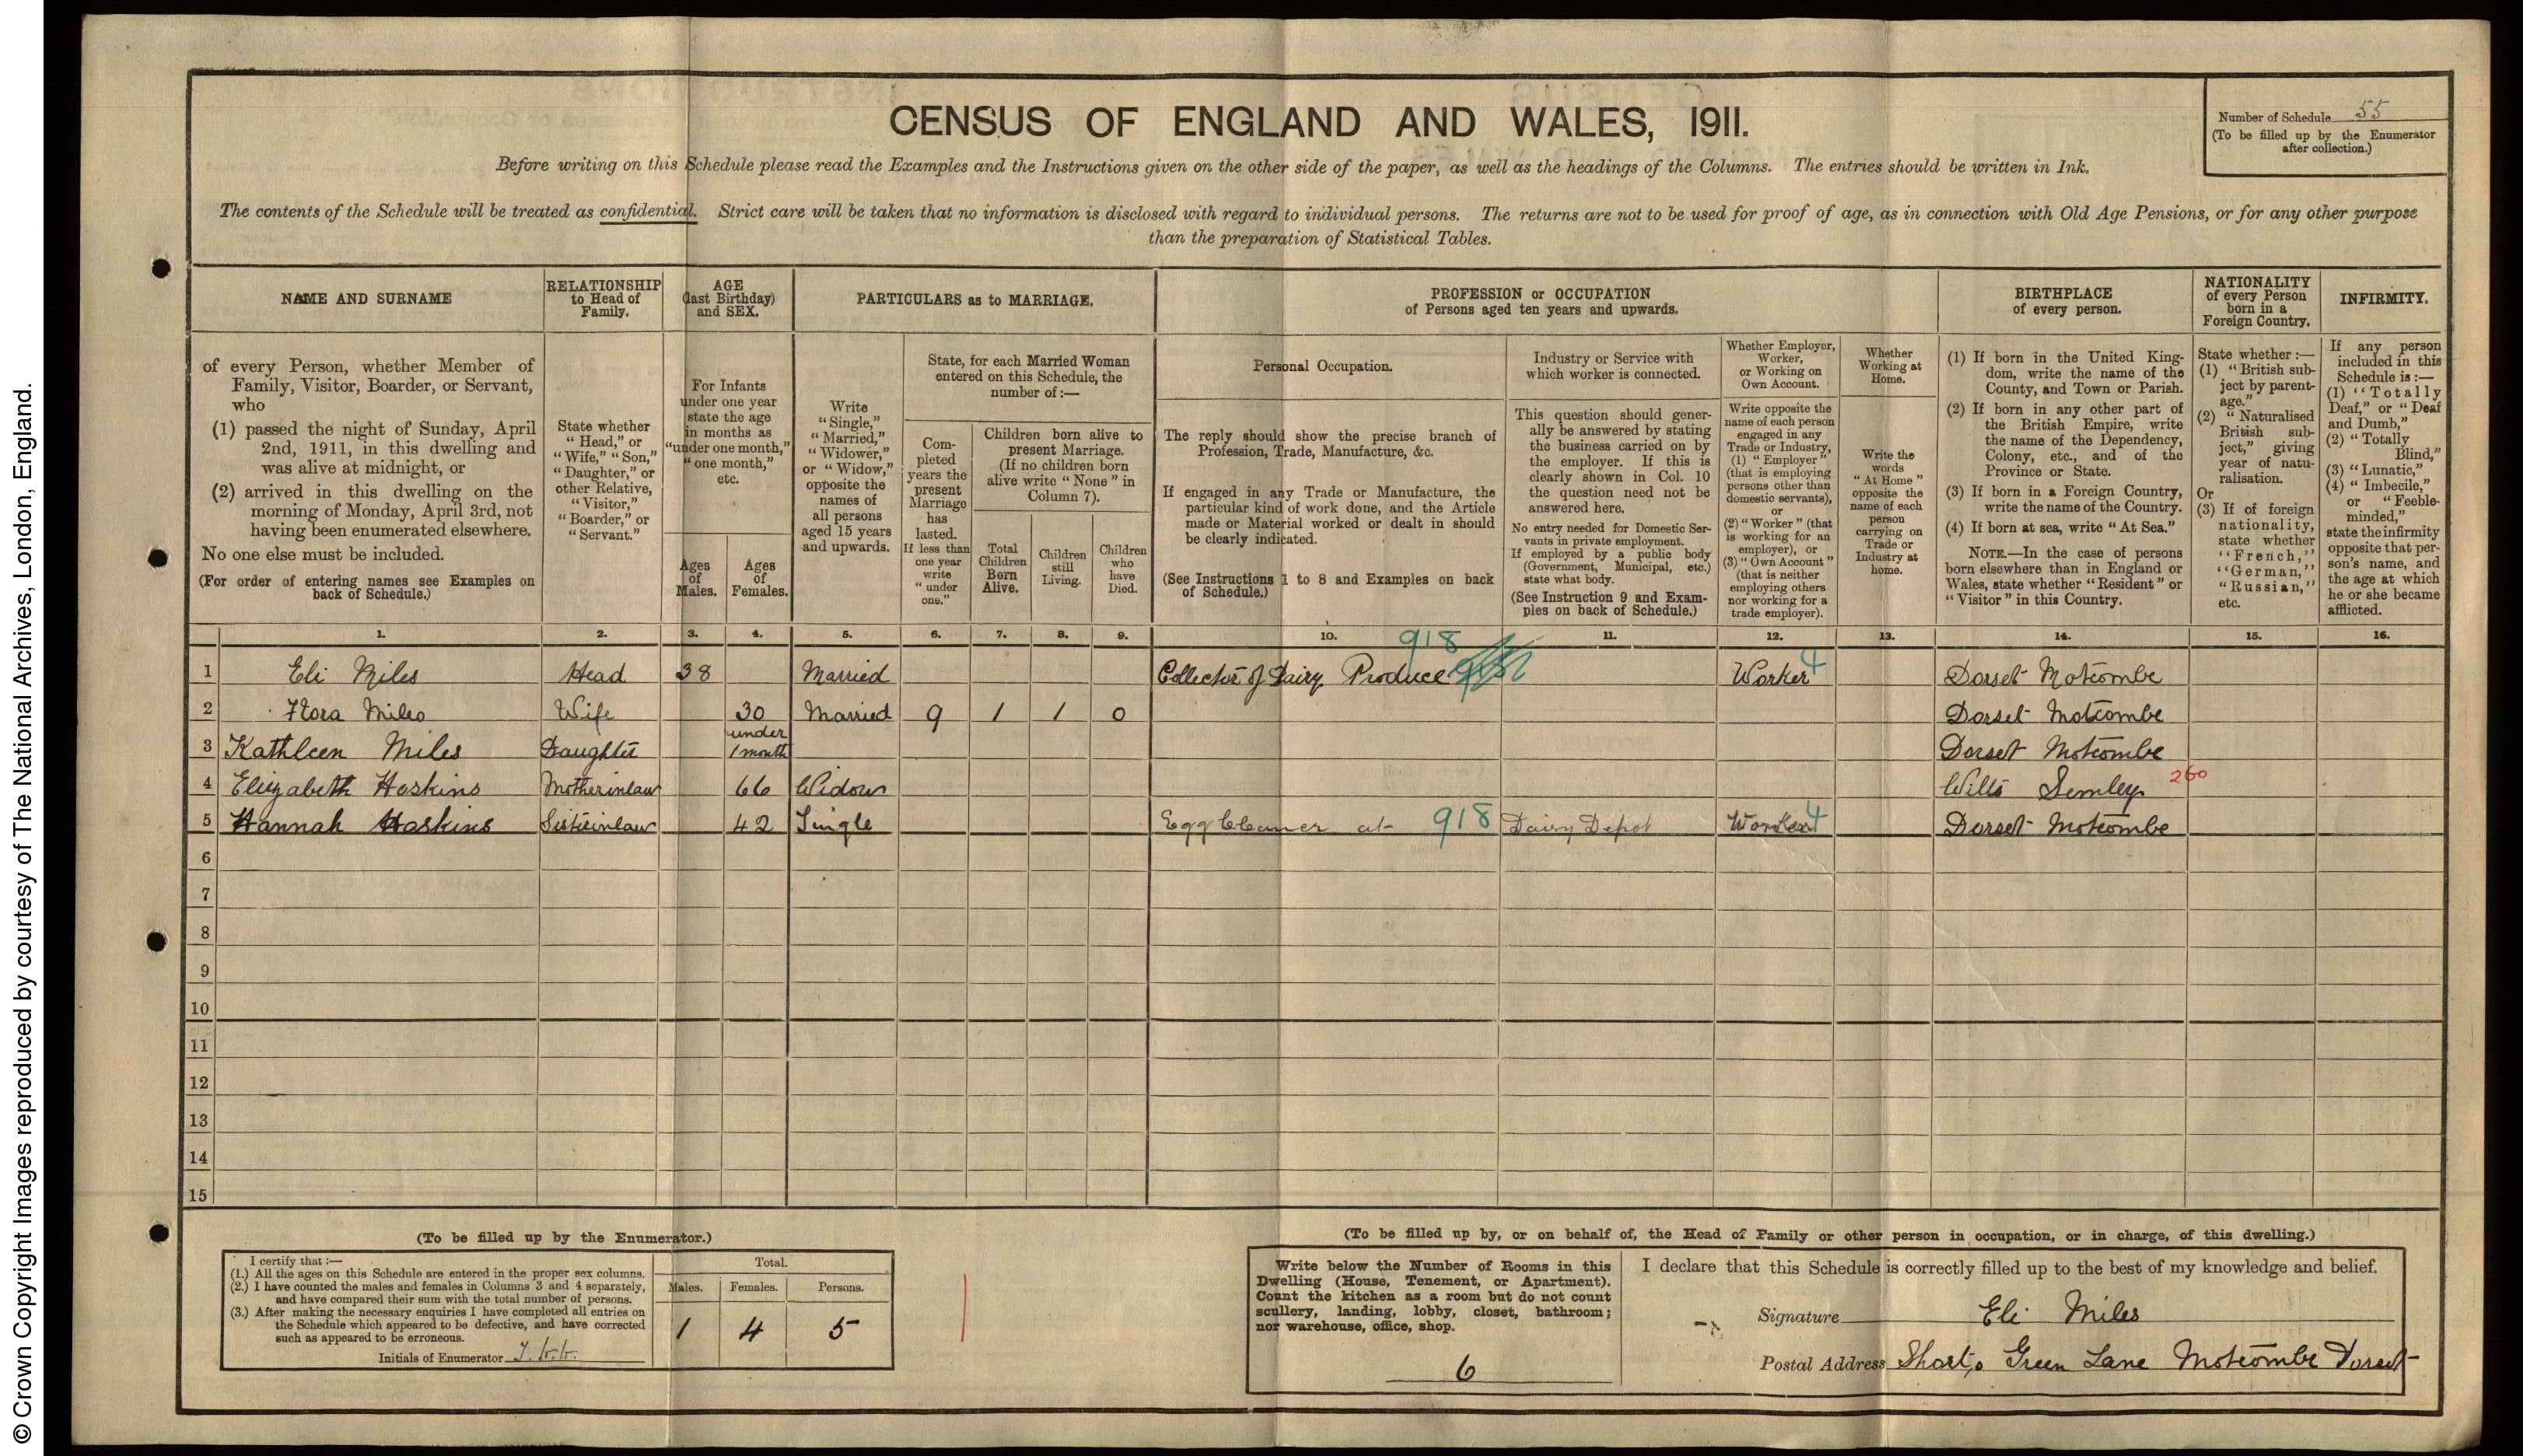 © Crown Copyright Images reproduced by courtesy of The National Archives, London, England.
CENSUS OF ENGLAND AND WALES, 1911.
Number of Schedule 55
(To be filled up by the Enumerator
after collection.)
Before writing on this Schedule please read the Examples and the Instructions given on the other side of the paper, as well as the headings of the Columns. The entries should be written in Ink.
The contents of the Schedule will be treated as confidential. Strict care will be taken that no information is disclosed with regard to individual persons. The returns are not to be used for proof of age, as in connection with Old Age Pensions, or for any other purpose
than the preparation of Statistical Tables.
NAME AND SURNAME
of every Person, whether Member of
Family, Visitor, Boarder, or Servant,
who
(1) passed the night of Sunday, April
2nd, 1911, in this dwelling and
was alive at midnight, or
(2) arrived in this dwelling on the
morning of Monday, April 3rd, not
having been enumerated elsewhere.
No one else must be included.
(For order of entering names see Examples on
back of Schedule.)
RELATIONSHIP
to Head of
Family.
State whether
"Head," or
"Wife," "Son,"
"Daughter," or
other Relative,
"Visitor,"
"Boarder," or
"Servant."
AGE
(last Birthday)
and SEX.
For Infants
under one year
state the age
in months as
"under one month,"
"one month,"
etc.
Ages
of
Males.
Ages
of
Females.
PARTICULARS as to MARRIAGE.
Write
"Single,"
"Married,"
"Widower,"
or "Widow,"
opposite the
names of
all persons
aged 15 years
and upwards.
State, for each Married Woman
entered on this Schedule, the
number of:—
Com-
pleted
years the
present
Marriage
has
lasted.
If less than
one year
write
"under
one."
Children born alive to
present Marriage.
(If no children born
alive write "None" in
Column 7).
Total
Children
Born
Alive.
Children
still
Living.
Children
who
have
Died.
PROFESSION or OCCUPATION
of Persons aged ten years and upwards.
Personal Occupation.
The reply should show the precise branch of
Profession, Trade, Manufacture, &c.
If engaged in any Trade or Manufacture, the
particular kind of work done, and the Article
made or Material worked or dealt in should
be clearly indicated.
(See Instructions 1 to 8 and Examples on back
of Schedule.)
Industry or Service with
which worker is connected.
This question should gener-
ally be answered by stating
the business carried on by
the employer. If this is
clearly shown in Col. 10
the question need not be
answered here.
No entry needed for Domestic Ser-
vants in private employment.
If employed by a public body
(Government, Municipal, etc.)
state what body.
(See Instruction 9 and Exam-
ples on back of Schedule.)
Whether Employer,
Worker,
or Working on
Own Account.
Write opposite the
name of each person
engaged in any
Trade or Industry,
(1) "Employer"
(that is employing
persons other than
domestic servants),
or
(2) "Worker" (that
is working for an
employer), or
(3) "Own Account"
(that is neither
employing others
nor working for a
trade employer).
Whether
Working at
Home.
Write the
words
"At Home"
opposite the
name of each
person
carrying on
Trade or
Industry at
home.
BIRTHPLACE
of every person.
(1) If born in the United King-
dom, write the name of the
County, and Town or Parish.
(2) If born in any other part of
the British Empire, write
the name of the Dependency,
Colony, etc., and of the
Province or State.
(3) If born in a Foreign Country,
write the name of the Country.
(4) If born at sea, write "At Sea."
NOTE.—In the case of persons
born elsewhere than in England or
Wales, state whether "Resident" or
"Visitor" in this Country.
NATIONALITY
of every Person
born in a
Foreign Country.
State whether:—
(1) "British sub-
ject by parent-
age."
(2) "Naturalised
British sub-
ject," giving
year of natu-
ralisation.
Or
(3) If of foreign
nationality,
state whether
"French,"
"German,"
"Russian,"
etc.
INFIRMITY.
If any person
included in this
Schedule is:—
(1) "Totally
Deaf," or "Deaf
and Dumb,"
(2) "Totally
Blind,"
(3) "Lunatic,"
(4) "Imbecile,"
or "Feeble-
minded,"
state the infirmity
opposite that per-
son's name, and
the age at which
he or she became
afflicted.
1. 2. 3. 4. 5. 6. 7. 8. 9. 10. 11. 12. 13. 14. 15. 16.
918
1 Eli Miles Head 38 Married Collector of Dairy Produce Worker 4 Dorset Motcombe
2 Flora Miles Wife 30 Married 9 1 1 0 Dorset Motcombe
3 Kathleen Miles Daughter under 1 month Dorset Motcombe
4 Elizabeth Hoskins Motherinlaw 66 Widow Wilts Semley 260
5 Hannah Hoskins Sisterinlaw 42 Single Egg Cleaner at 918 Dairy Depot Worker 4 Dorset Motcombe
6
7
8
9
10
11
12
13
14
15
(To be filled up by the Enumerator.)
I certify that:—
(1.) All the ages on this Schedule are entered in the proper sex columns.
(2.) I have counted the males and females in Columns 3 and 4 separately,
and have compared their sum with the total number of persons.
(3.) After making the necessary enquiries I have completed all entries on
the Schedule which appeared to be defective, and have corrected
such as appeared to be erroneous.
Initials of Enumerator
Total.
Males. Females. Persons.
1 4 5
(To be filled up by, or on behalf of, the Head of Family or other person in occupation, or in charge, of this dwelling.)
Write below the Number of Rooms in this
Dwelling (House, Tenement, or Apartment).
Count the kitchen as a room but do not count
scullery, landing, lobby, closet, bathroom;
nor warehouse, office, shop.
6
I declare that this Schedule is correctly filled up to the best of my knowledge and belief.
Signature Eli Miles
Postal Address Shorts Green Lane Motcombe Dorset